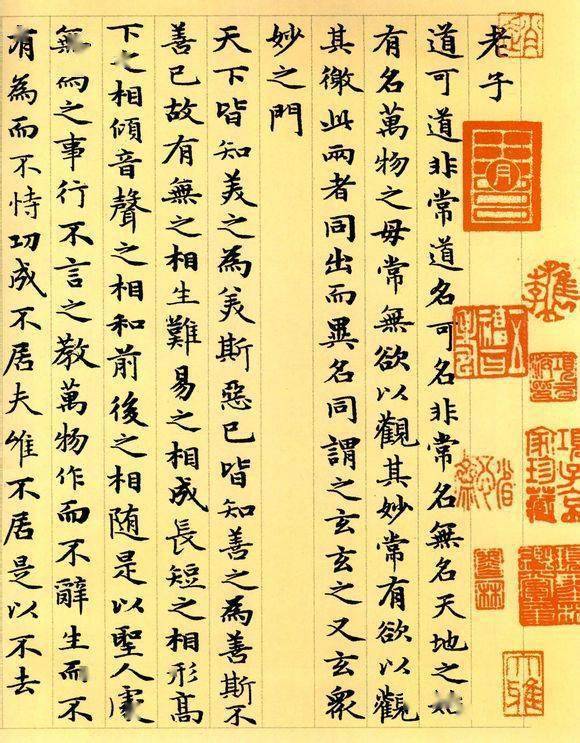 老子
道可道非常道名可名非常名無名天地之始
有名萬物之母常無欲以觀其妙常有欲以觀
其徼此兩者同出而異名同謂之玄玄之又玄眾
妙之門
天下皆知美之為美斯惡已皆知善之為善斯不
善已故有無之相生難易之相成長短之相形高
下之相傾音聲之相和前後之相随是以聖人處
無為之事行不言之教萬物作而不辭生而不
有為而不恃功成不居夫唯不居是以不去
項子京家珍藏
墨林